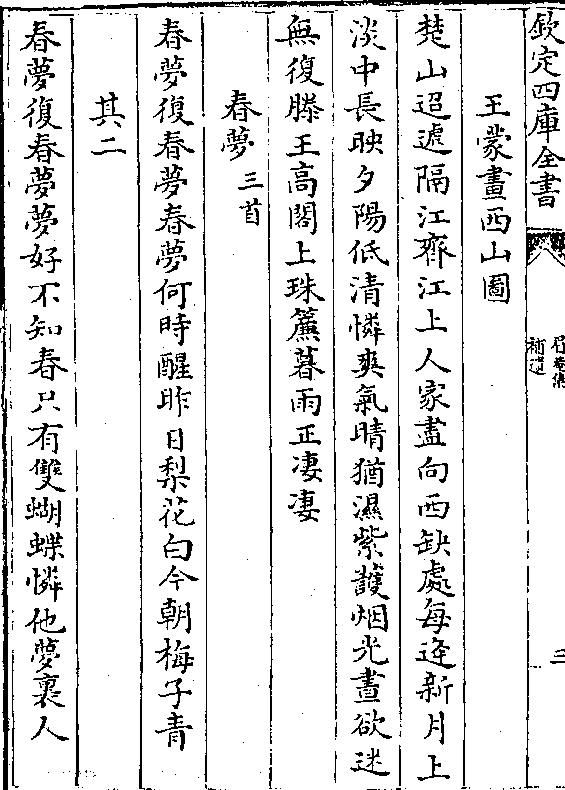 欽定四庫全書
眉菴集
補遺
三
王蒙畫西山圖
楚山迢遞隔江齊江上人家盡向西缺處每逢新月上
淡中長映夕陽低清憐爽氣晴猶濕紫護烟光晝欲迷
無復滕王高閣上珠簾暮雨正凄凄
春夢三首
春夢復春夢春夢何時醒昨日梨花白今朝梅子青
其二
春夢復春夢夢好不知春只有雙蝴蝶憐他夢裏人